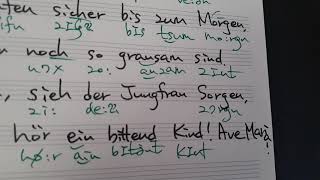 ten sicher bis zum Morgen,
zIçɐ bIs tsum mo:rgn
n noch so grausam sind.
nɔx zo: zInt
, sieh der Jungfrau Sorgen,
zi: de:ɐ
hör ein bittend Kind! Ave Maria!
hø:r ain bItənt KInt